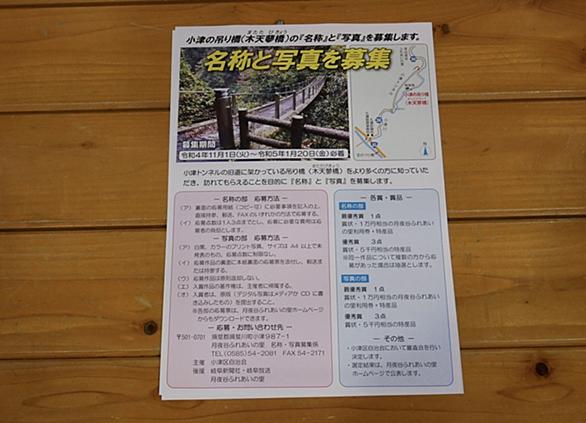 小津の吊り橋(木天蓼橋)の『名称』と『写真』を募集します。
名称と写真を募集
募集期間
令和4年11月1日(火)～令和5年1月20日(金)必着
小津トンネルの旧道に架かっている吊り橋(木天蓼橋)をより多くの方に知っていた
だき、訪れてもらえることを目的に『名称』と『写真』を募集します。
― 名称の部 応募方法 ―
(ア) 裏面の応募用紙(コピー可)に必要事項を記入の上、
直接持参、郵送、FAXのいずれかの方法で応募する。
(イ) 応募点数は1人3点までとし、応募に必要な費用は応募
者の負担とします。
― 写真の部 応募方法 ―
(ア) 白黒、カラーのプリント写真、サイズはA4以上で未
発表のもの。応募点数に制限なし。
(イ) 応募作品の裏面に本紙裏面の応募票を添付し、郵送ま
たは持参する。
(ウ) 応募作品は原則返却しない。
(エ) 入賞作品の著作権は、主催者に帰属する。
(オ) 入賞者は、原版(デジタル写真はメディアかCDに書
き込みしたもの)を提出すること。
※各部の応募票は、月夜谷ふれあいの里ホームページ
からもダウンロードできます。
― 応募・お問い合わせ先 ―
〒501-0701 揖斐郡揖斐川町小津987-1
月夜谷ふれあいの里 名称・写真募集係
TEL(0585)54-2081 FAX 54-2171
主催 小津区自治会
後援 岐阜新聞社・岐阜放送
月夜谷ふれあいの里
― 各賞・賞品 ―
名称の部
最優秀賞 1点
賞状・1万円相当の月夜谷ふれあい
の里利用券+特産品
優秀賞 3点
賞状・5千円相当の特産品
※同一作品について複数の方から応
募があった場合は抽選とします。
写真の部
最優秀賞 1点
賞状・1万円相当の月夜谷ふれあい
の里利用券+特産品
優秀賞 3点
賞状・5千円相当の特産品
― その他 ―
・小津区自治会において審査会を行い
決定します。
・選定結果は、月夜谷ふれあいの里
ホームページで公表します。